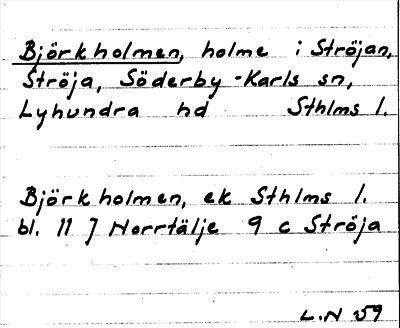 Björkholmen, holme i Ströjan,
Ströja, Söderby-Karls sn,
Lyhundra hd Sthlms l.
Björkholmen, ek Sthlms l.
bl. 11 J Norrtälje 9 c Ströja
L.N 59